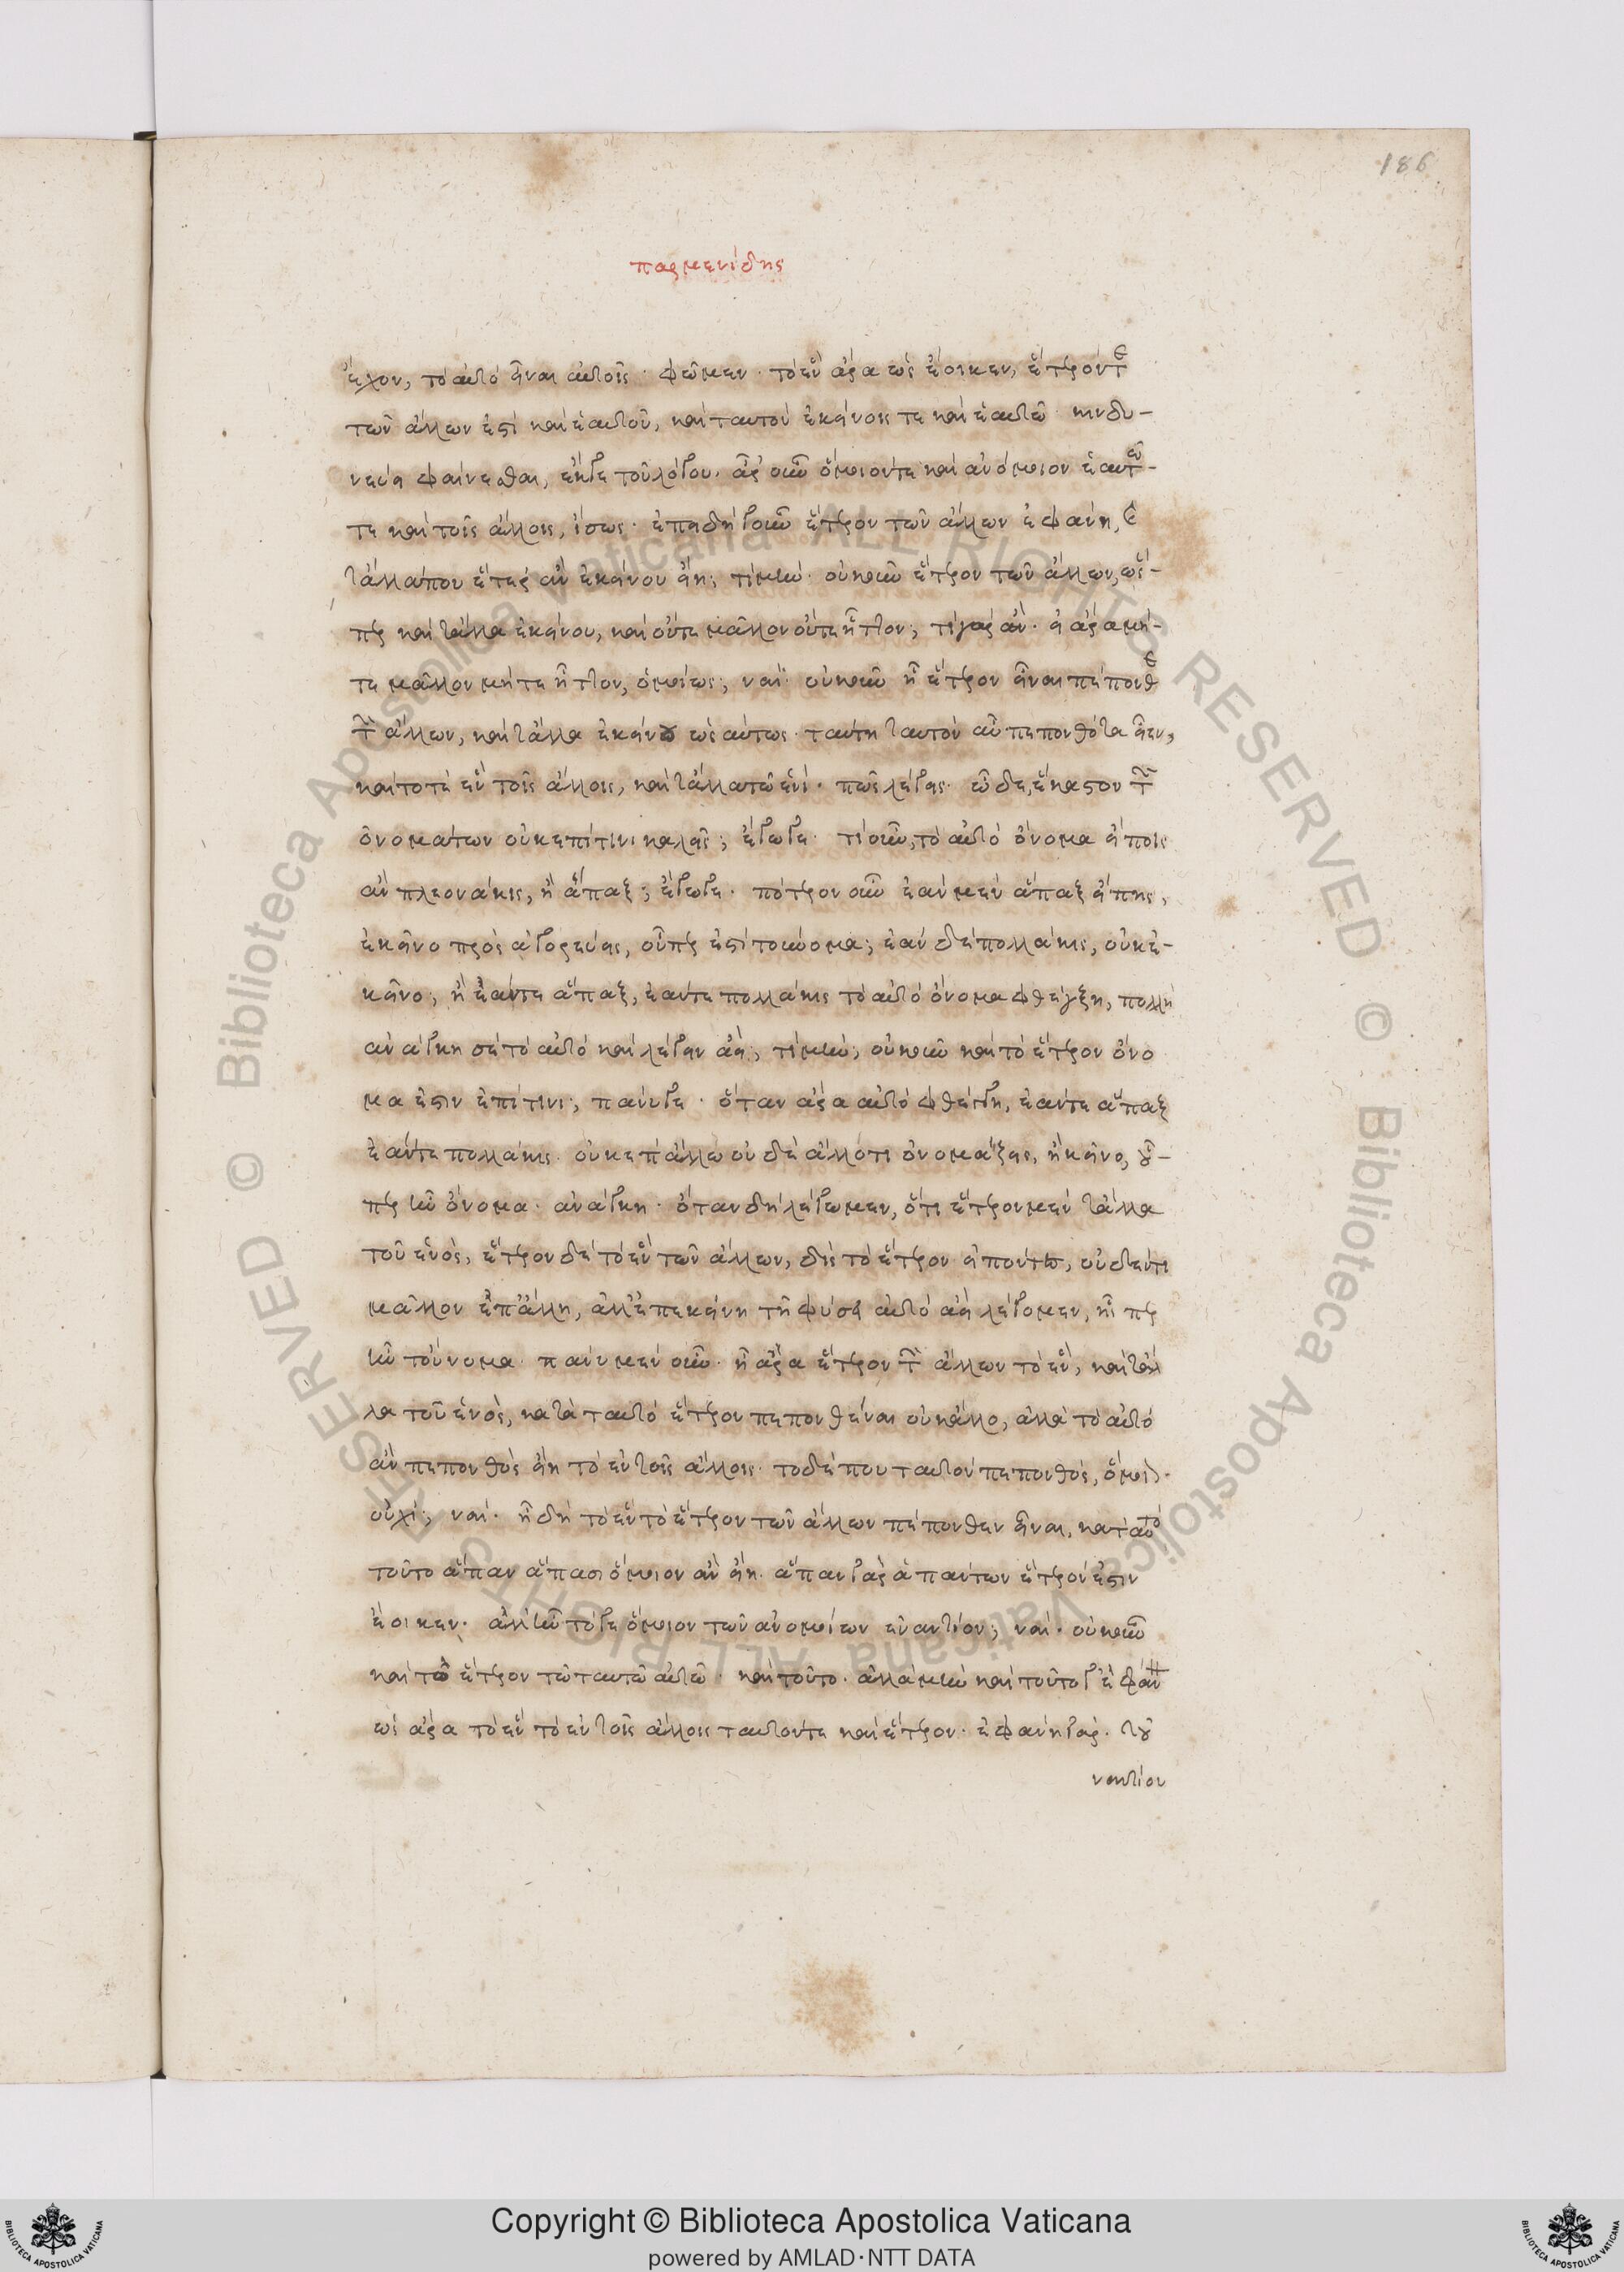 186
παρμενίδης
ἔχον, τὸ αὐτὸ εἶναι αὐτοῖς· φῶμεν· τὸ ἓν ἄρα ὡς ἔοικεν, ἕτερόν τε
τῶν ἄλλων ἐστὶ καὶ ἑαυτοῦ, καὶ ταυτὸν ἐκείνοις τε καὶ ἑαυτῶ· κινδυ-
νεύει φαίνεσθαι, ἔκγε τοῦ λόγου· ἆρ' οὖν ὅμοιόν τε καὶ ἀνόμοιον ἑαυτῶ-
τε καὶ τοῖς ἄλλοις, ἴσως· ἐπειδὴ γοῦν ἕτερον τῶν ἄλλων ἐφάνη, καὶ
τἄλλά που ἕτερ' ἂν ἐκείνου εἴη; τί μὴν· οὐκοῦν ἕτερον τῶν ἄλλων, ὥσ-
περ καὶ τἄλλα ἐκείνου, καὶ οὔτε μᾶλλον οὔτε ἧττον; τί γὰρ ἄν· εἰ ἄρα μή-
τε μᾶλλον μήτε ἧττον, ὁμοίως; ναί· οὐκοῦν ἧ ἕτερον εἶναι πέπονθε
τῶν ἄλλων, καὶ τἄλλα ἐκείνου ὡσαύτως· ταύτη ταυτὸν ἂν πεπονθότα εἶεν,
καὶ τό τε ἓν τοῖς ἄλλοις, καὶ τἄλλα τῶ ἑνί· πῶς λέγεις· ὧδε, ἕκαστον τῶν
ὀνομάτων οὐκ ἐπί τινι καλεῖς; ἔγωγε· τί οὖν, τὸ αὐτὸ ὄνομα εἴποις
ἂν πλεονάκις, ἢ ἅπαξ; ἔγωγε· πότερον οὖν ἐὰν μὲν ἅπαξ εἴπης,
ἐκεῖνο προσαγορεύεις, οὗπερ ἐστὶ τοὔνομα; ἐὰν δὲ πολλάκις, οὐκ ἐ-
κεῖνο; ἢ ἐάντε ἅπαξ, ἐάντε πολλάκις τὸ αὐτὸ ὄνομα φθέγξη, πολλὴ
ἀνάγκη σὲ τὸ αὐτὸ καὶ λέγειν ἀεί; τί μὴν; οὐκοῦν καὶ τὸ ἕτερον ὄνο
μα ἐστιν ἐπί τινι; πάνυγε· ὅταν ἄρα αὐτὸ φθέγγη, ἐάντε ἅπαξ
ἐάντε πολλάκις· οὐκ ἐπ' ἄλλω οὐδὲ ἄλλό τι ὀνομάζεις, ἢ κεῖνο, οὗ-
περ ἦν ὄνομα· ἀνάγκη· ὅταν δὴ λέγωμεν, ὅτι ἕτερον μὲν τἄλλα
τοῦ ἑνὸς, ἕτερον δὲ τὸ ἓν τῶν ἄλλων, δὶς τὸ ἕτερον εἰπόντες, οὐδέν τι
μᾶλλον ἐπ' ἄλλη, ἀλλ' ἐπ' ἐκείνη τῆ φύσει αὐτὸ ἀεὶ λέγομεν, ἧσπερ
ἦν τοὔνομα· πάνυ μὲν οὖν· ἧ ἄρα ἕτερον τῶν ἄλλων τὸ ἓν, καὶ τἄλ
λα τοῦ ἑνὸς, κατὰ ταυτὸ ἕτερον πεπονθέναι οὐκ ἄλλο, ἀλλὰ τὸ αὐτὸ
ἂν πεπονθὸς εἴη τὸ ἓν τοῖς ἄλλοις· τὸ δέ που ταυτὸν πεπονθός, ὅμοιον·
οὐχί; ναί· ἧ δὴ τὸ ἓν τὸ ἕτερον τῶν ἄλλων πέπονθεν εἶναι, κατ' αὐτὸ
τοῦτο ἅπαν ἅπασι ὅμοιον ἂν εἴη· ἅπαν γὰρ ἁπάντων ἕτερόν ἐστιν
ἔοικεν· ἀλλ' ἦν τό γε ὅμοιον τῶν ἀνομοίων ἐναντίον; ναί· οὐκοῦν
καὶ τὸ ἕτερον τῶ ταυτῶ αὐτῶ· καὶ τοῦτο· ἀλλὰ μὴν καὶ τοῦτό γ' ἐφάνη
ὡς ἄρα τὸ ἓν τὸ ἐν τοῖς ἄλλοις ταυτόν τε καὶ ἕτερον· ἐφάνη γάρ· του
ναντίον
Copyright © Biblioteca Apostolica Vaticana
powered by AMLAD·NTT DATA